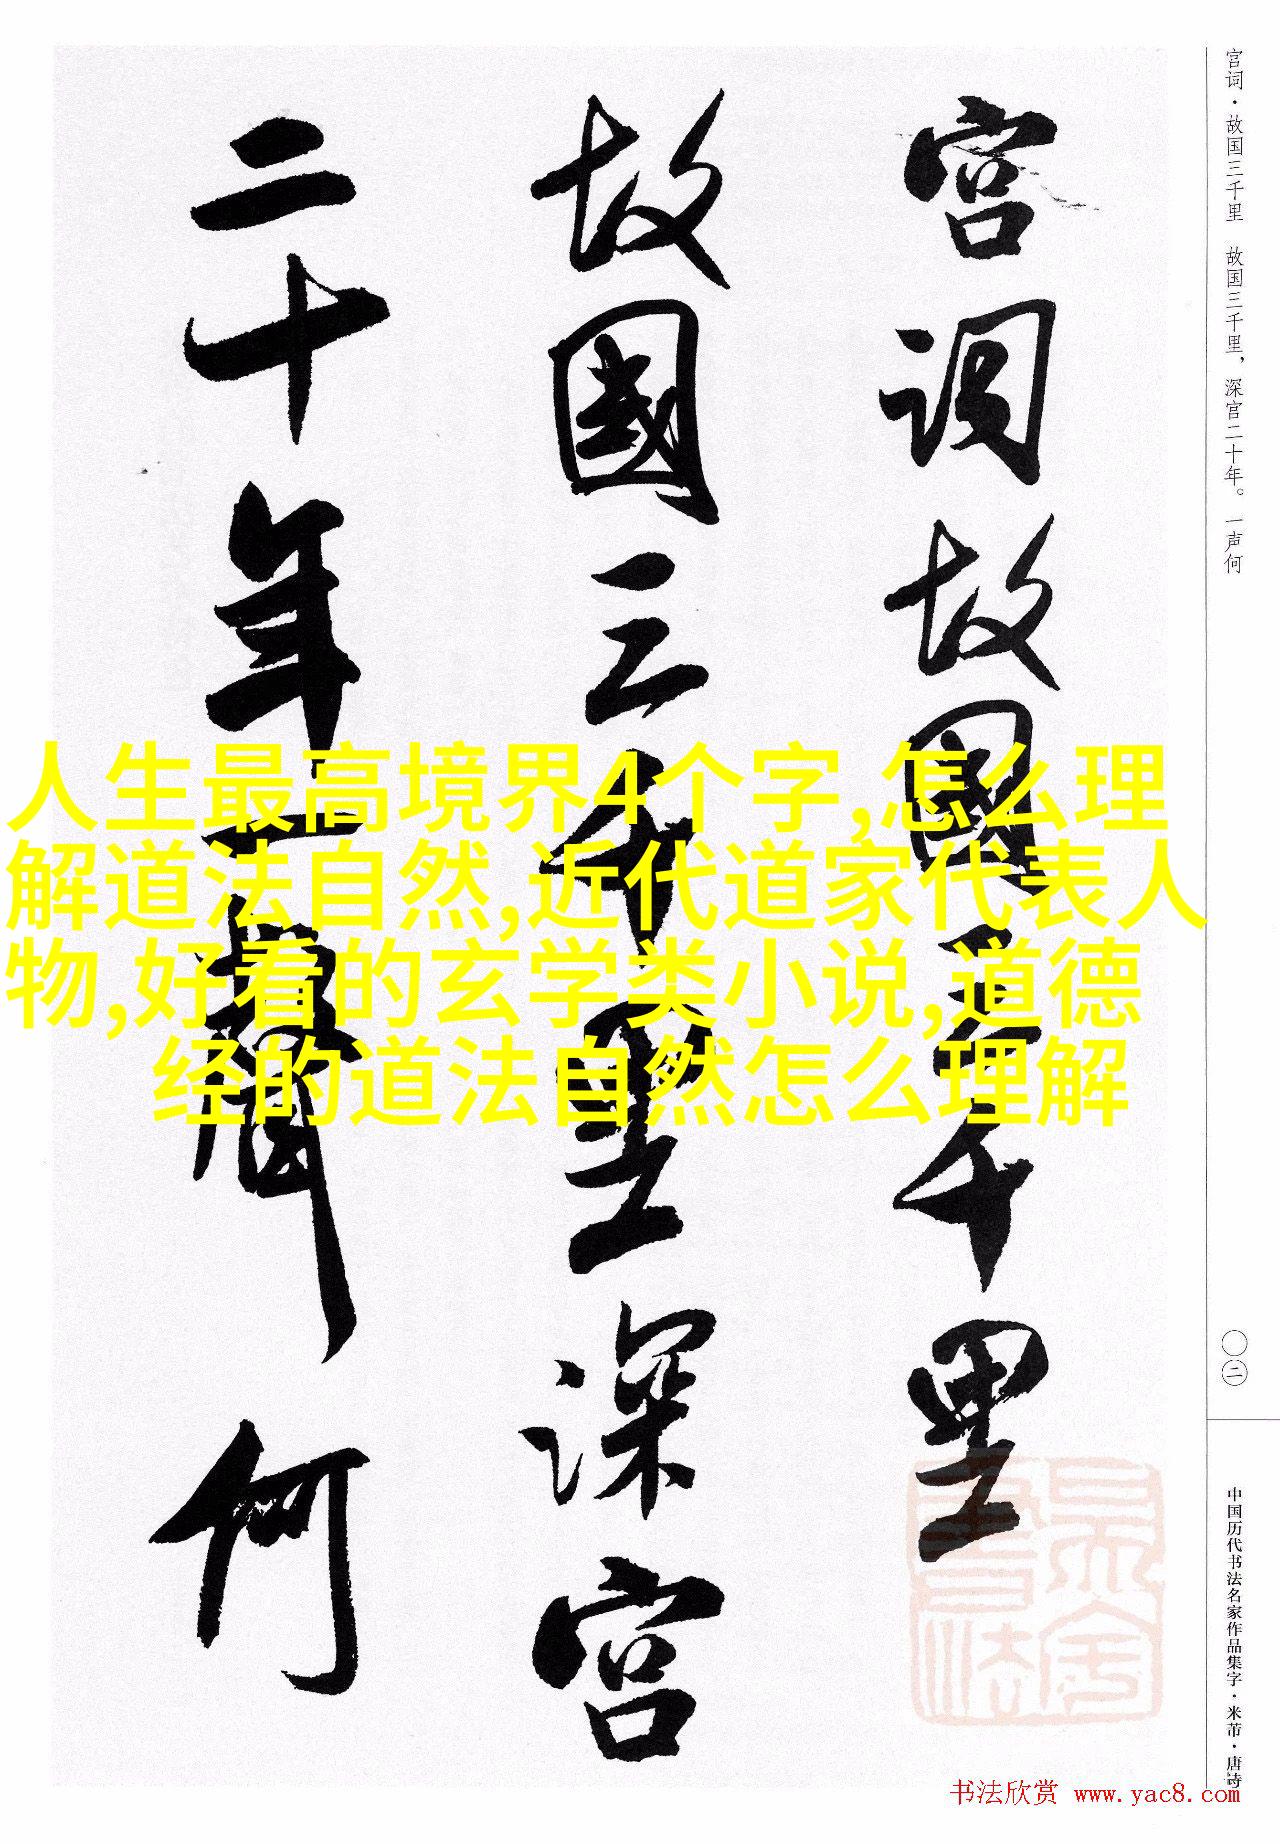 宫词故国三千里
故國三千里深宫
二十年一聲何
宫词·故国三千里 故国三千里，深宫二十年。一声何
〇二
中国历代书法名家作品集字·米芾·唐诗
人生最高境界4个字,怎么理
解道法自然,近代道家代表人
物,好看的玄学类小说,道德
经的道法自然怎么理解
书法欣赏 www.yac8.com